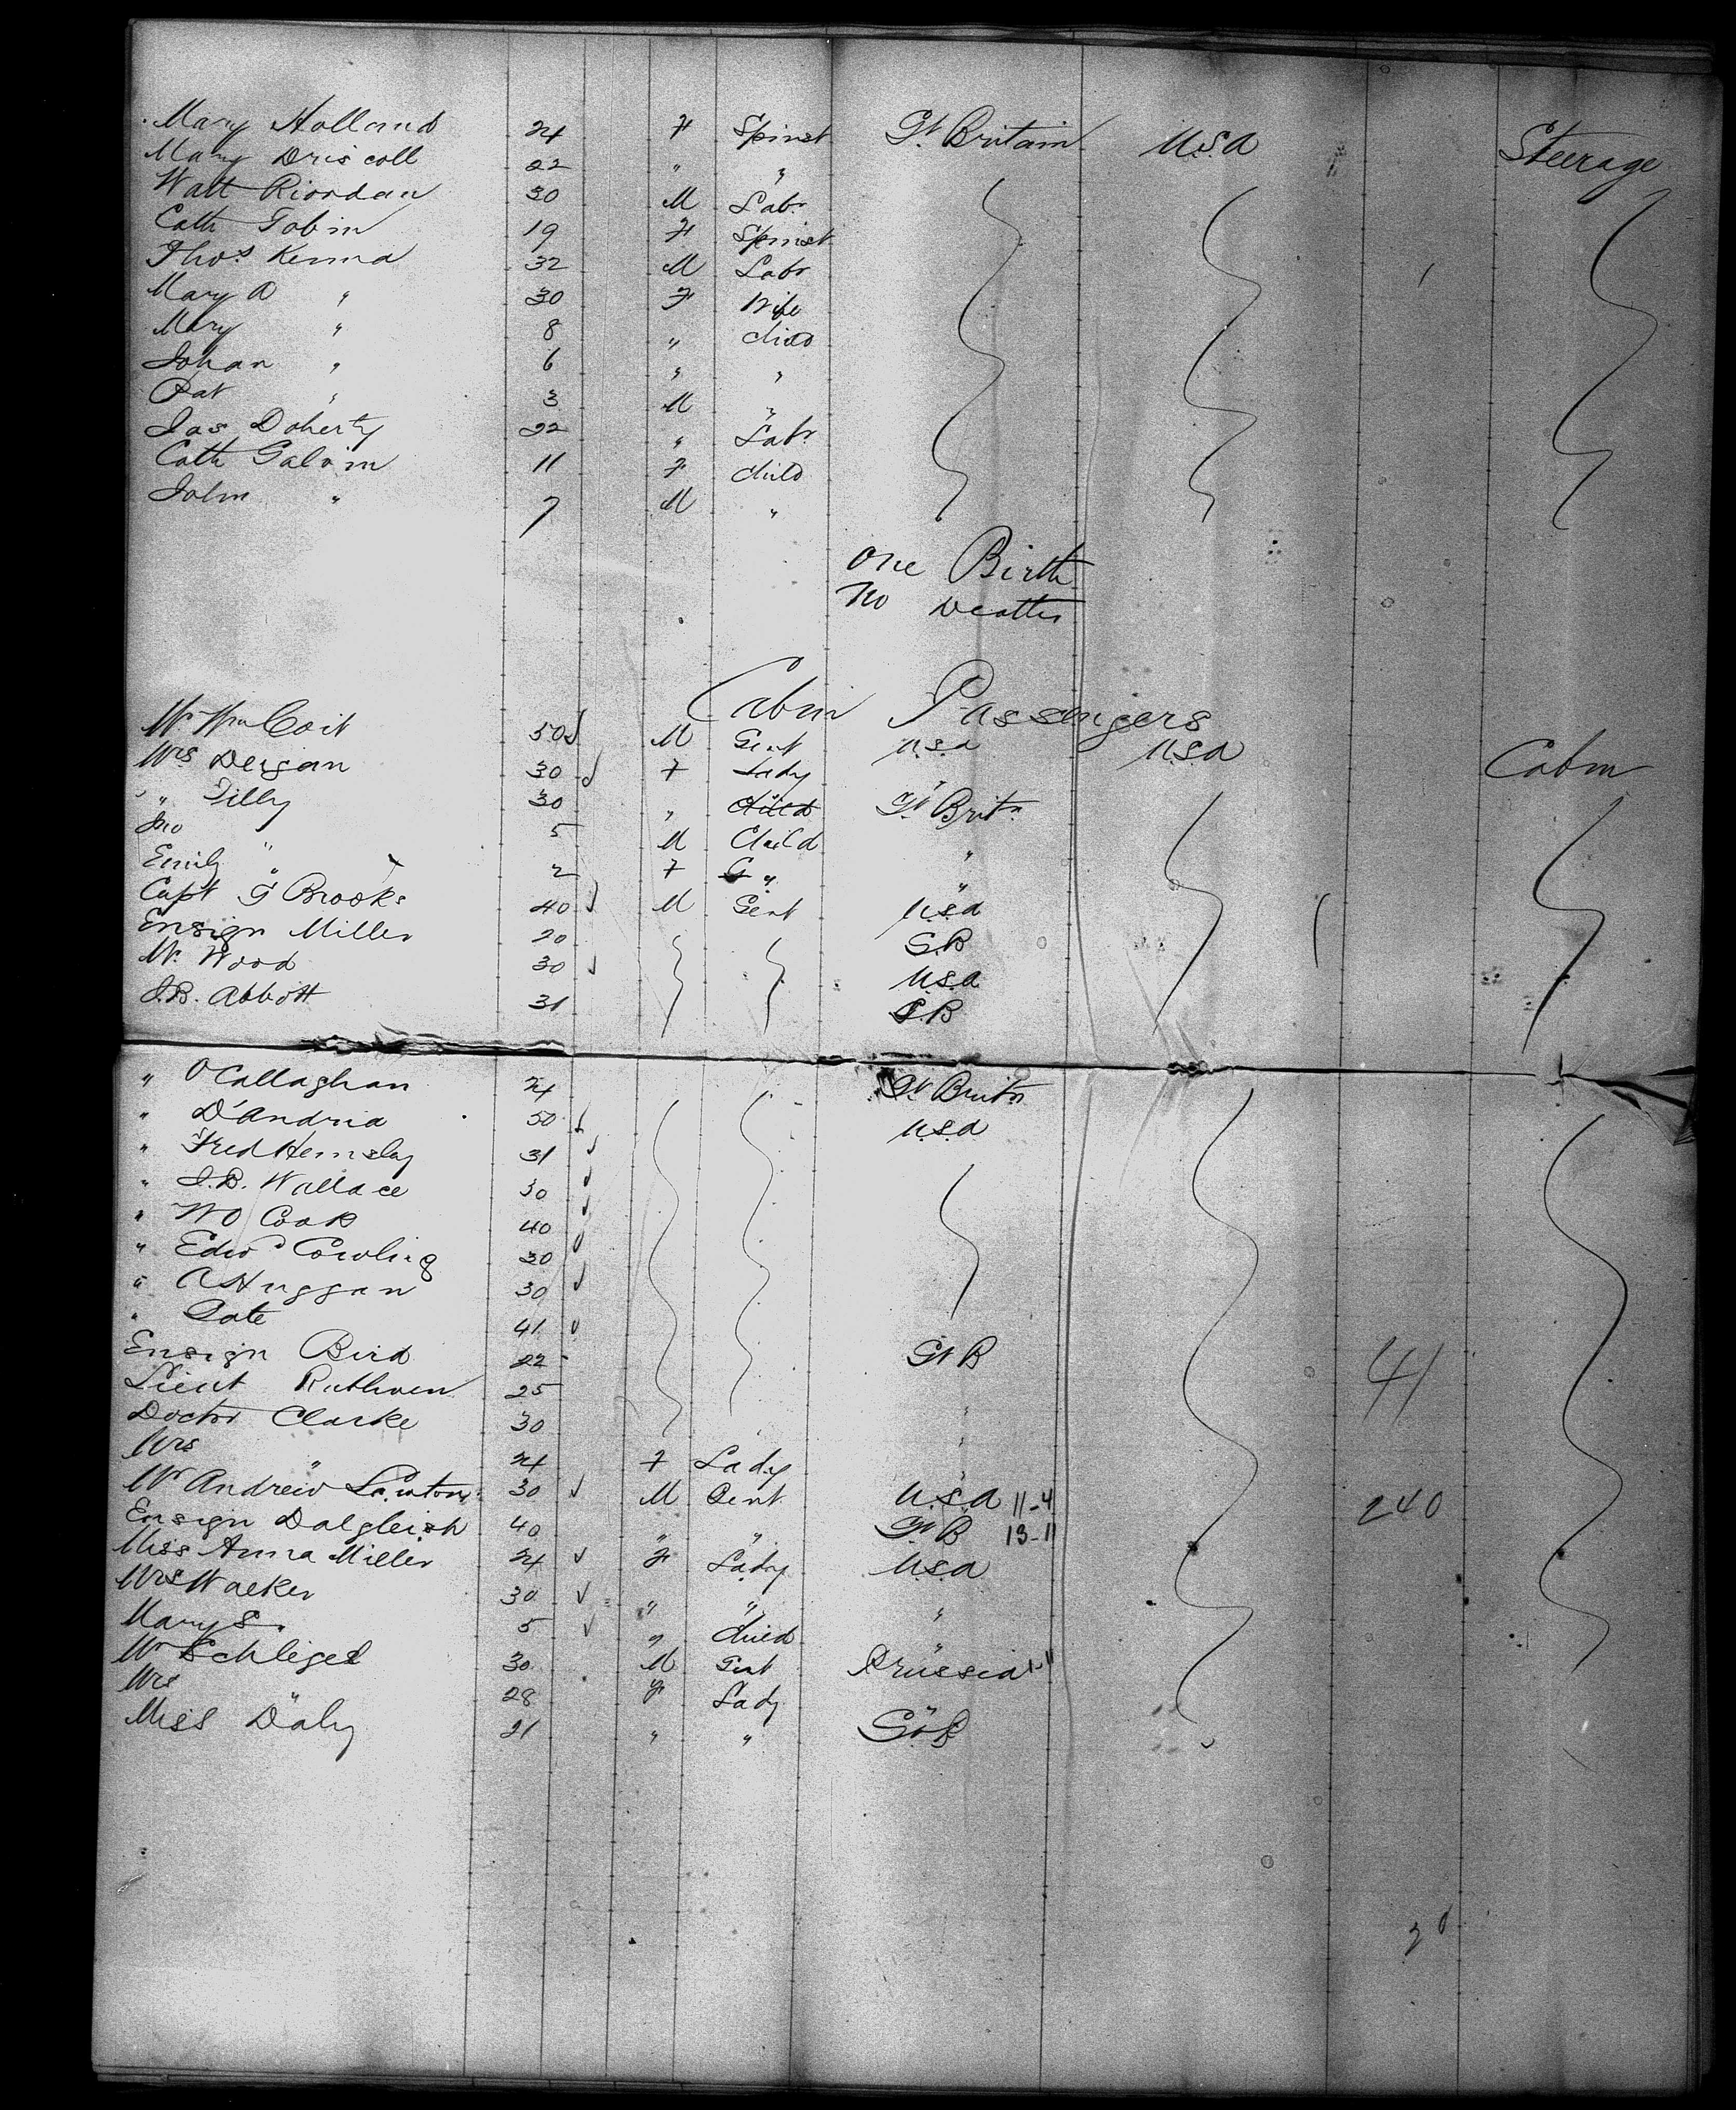 Mary Holland 24 F Spinst Gt. Britain U.S.A Steerage
Mary Driscoll 22 " "
Watt Riordan 30 M Labr
Cath Tobin 19 F Spinst
Thos Kenna 32 M Labr
Mary A " 30 F Wife
Mary " 8 " Child
Johan " 6 " "
Pat " 3 M "
Jas Doherty 22 " Labr
Cath Galvin 11 F Child
John " 7 M "
One Birth
No Deaths
Cabin Passengers
Mr Wm Coit 50 M Gent U.S.A U.S.A Cabin
Mrs Deigan 30 F Lady "
" Tilly 30 " Child Gt Britn
Jno " 5 M Child "
Emily " 2 F " "
Capt G Brooks 40 M Gent U.S.A
Ensign Miller 20 G.B
Mr. Wood 30 U.S.A
J.B. Abbott 31 G.B
" O'Callaghan 24 Gt Britn
" D'Andria 50 U.S.A
" Fred Hemsley 31
" J.B. Wallace 30
" W O Cook 40
" Edwd Cowling 30
" A Huggan 30
" Tate 41
Ensign Bird 22 Gt B
Lieut Ruthven 25 "
Doctor Clarke 30 "
Mrs " 24 F Lady "
Mr Andrew Lawton 30 M Gent U.S.A 11-4 240
Ensign Dalgleish 40 " " Gt B 13-11
Miss Anna Miller 24 F Lady U.S.A
Mrs Walker 30 " " "
Mary S. 5 " Child "
Mr Schlegel 30 M Gent Prussia 1-11
Mrs " 28 F Lady "
Miss Daly 21 " " G.B
41
30